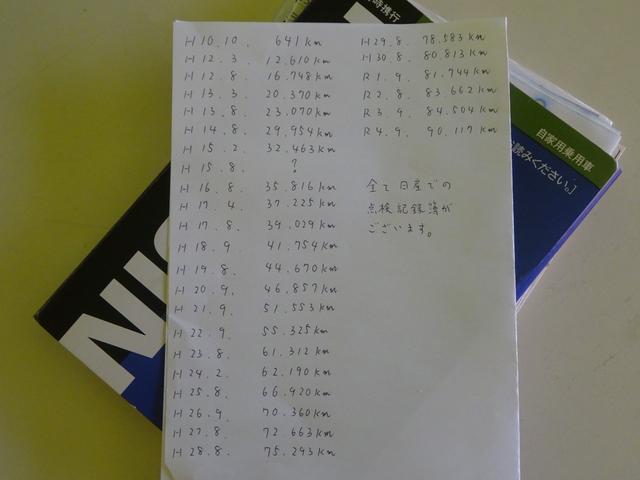 時携行
H 10.10. 641km
H 12.3. 12.610km
H 12.8 16.748km
H 13.3 20.370km
H 13.8 23.070km
H 14.8 29.954km
H 15.2. 32.463km
H 15.8. ?
H 16.8 35.816km
H 17.4. 37.225km
H 17.8 39.029km
H 18.9. 41.754km
H 19.8. 44.670km
H 20.9. 46.857km
H 21.9. 51.553km
H 22.9. 55.325km
H 23.8. 61.312km
H 24.2. 62.190km
H 25.8. 66.920km
H 26.9. 70.360km
H 27.8. 72.663km
H 28.8. 75.293km
H29.8. 78.583km
H30.8. 80.813km
R1.9. 81.744km
R2.8. 83.662km
R3.9. 84.504km
R4.9. 90.117km
全て日産での
点検記録簿が
ございます。
自家用乗用車
お読みください。」
NIS